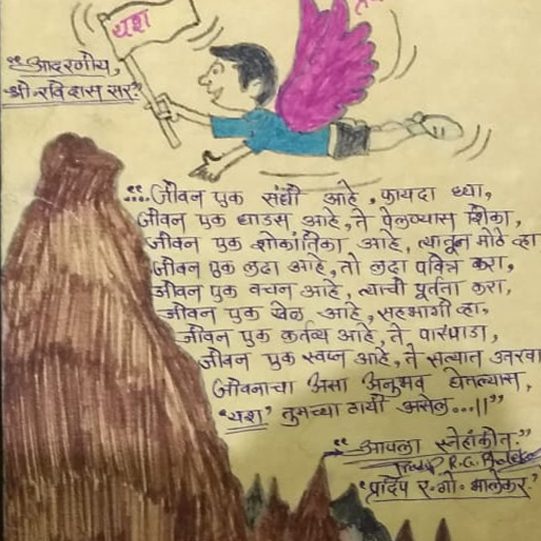 यश
"आदरणीय,
श्री. रविदास सर."
"जीवन एक संधी आहे, फायदा घ्या,
जीवन एक धाडस आहे, ते पेलण्यास शिका,
जीवन एक शोकांतिका आहे, त्यातून मोठे व्हा
जीवन एक लढा आहे, तो लढा पवित्र करा,
जीवन एक वचन आहे, त्याची पूर्तता करा,
जीवन एक खेळ आहे, सहभागी व्हा,
जीवन एक कर्तव्य आहे, ते पारपाडा,
जीवन एक स्वप्न आहे, ते सत्यात उतरवा
जीवनाचा असा अनुभव घेतल्यास,
'यश' तुमच्या ठायी असेल...||"
"आपला स्नेहांकीत."
R.G.
"प्रदिप र. गो. भालेकर."